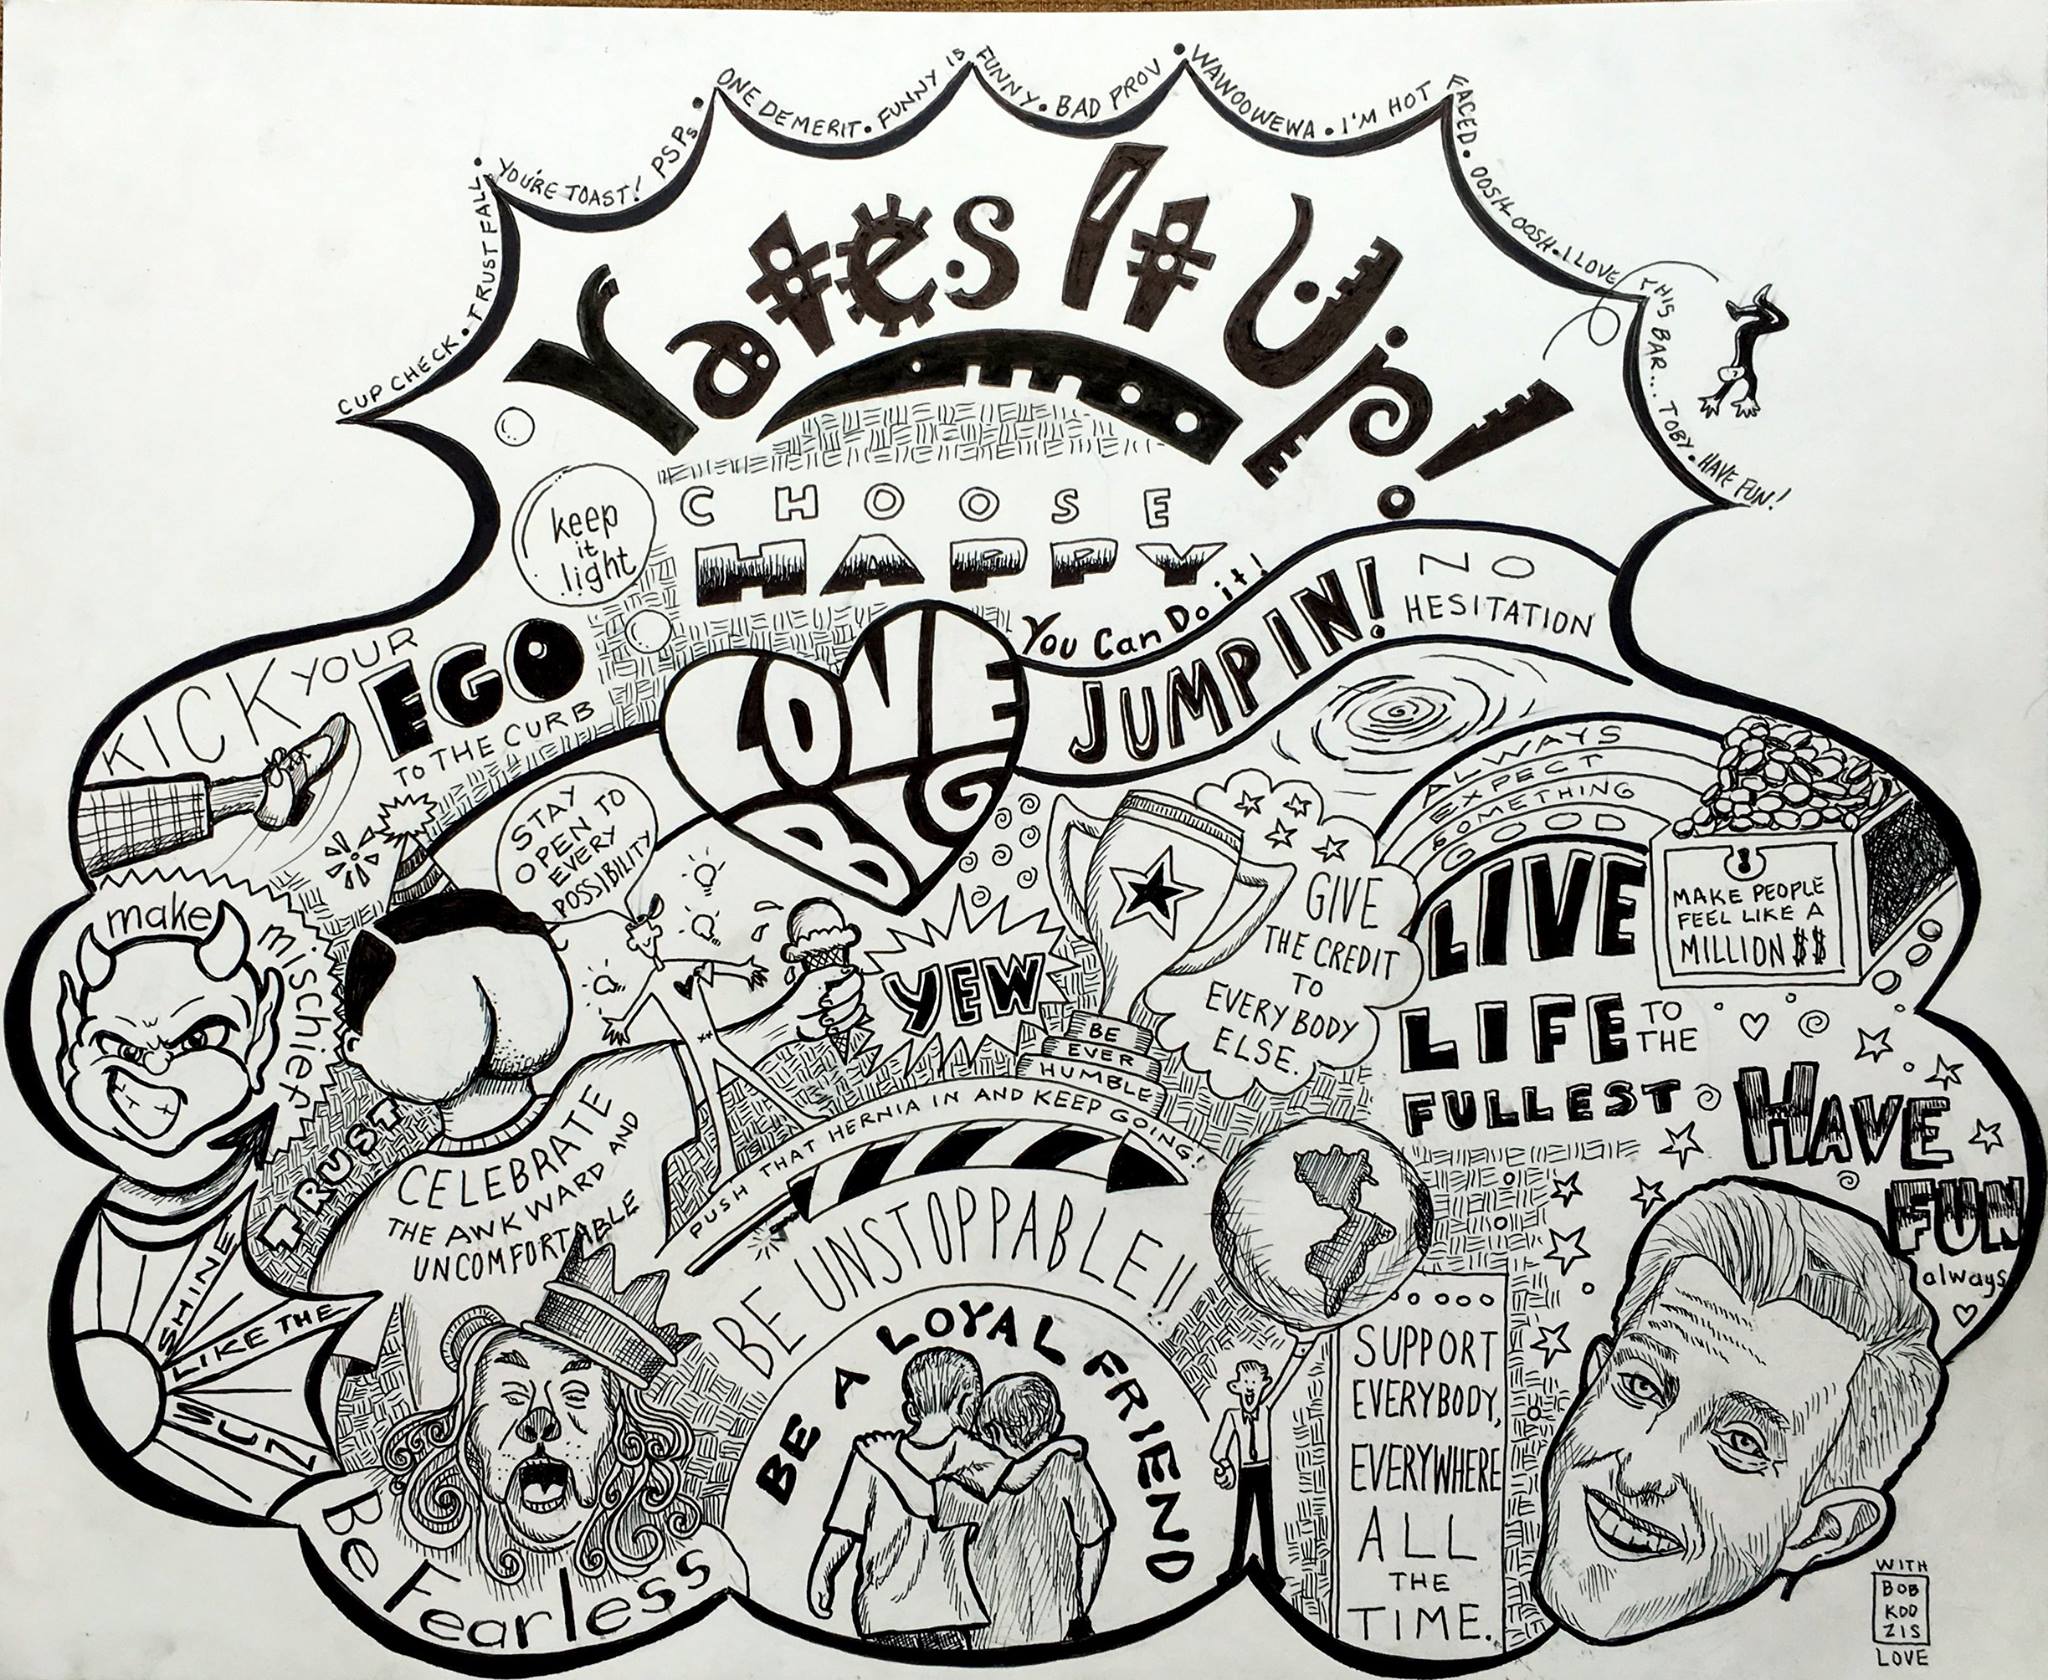 CUP CHECK • TRUST FALL • YOU'RE TOAST! PSPs • ONE DEMERIT • FUNNY IS FUNNY • BAD PROV • WAWOOWEWA • I'M HOT FACED • OOSH-OOSH • I LOVE THIS BAR... TOBY • HAVE FUN!
Yates It Up!
keep
it
light
CHOOSE
HAPPY
You Can Do it!
JUMP IN!
NO
HESITATION
KICK YOUR
EGO
TO THE CURB
LOVE
BIG
STAY
OPEN TO
EVERY
POSSIBILITY
ALWAYS
EXPECT
SOMETHING
GOOD
MAKE PEOPLE
FEEL LIKE A
MILLION $$
make
mischief
YEW
BE
EVER
HUMBLE
GIVE
THE CREDIT
TO
EVERYBODY
ELSE.
LIVE
LIFE TO
THE
FULLEST
HAVE
FUN
always
TRUST
CELEBRATE
THE AWKWARD AND
UNCOMFORTABLE
PUSH THAT HERNIA IN AND KEEP GOING!
BE UNSTOPPABLE!!
SHINE
LIKE THE
SUN
Be Fearless
BE A LOYAL FRIEND
SUPPORT
EVERYBODY,
EVERYWHERE
ALL
THE
TIME.
WITH
BOB
KOO
ZIS
LOVE